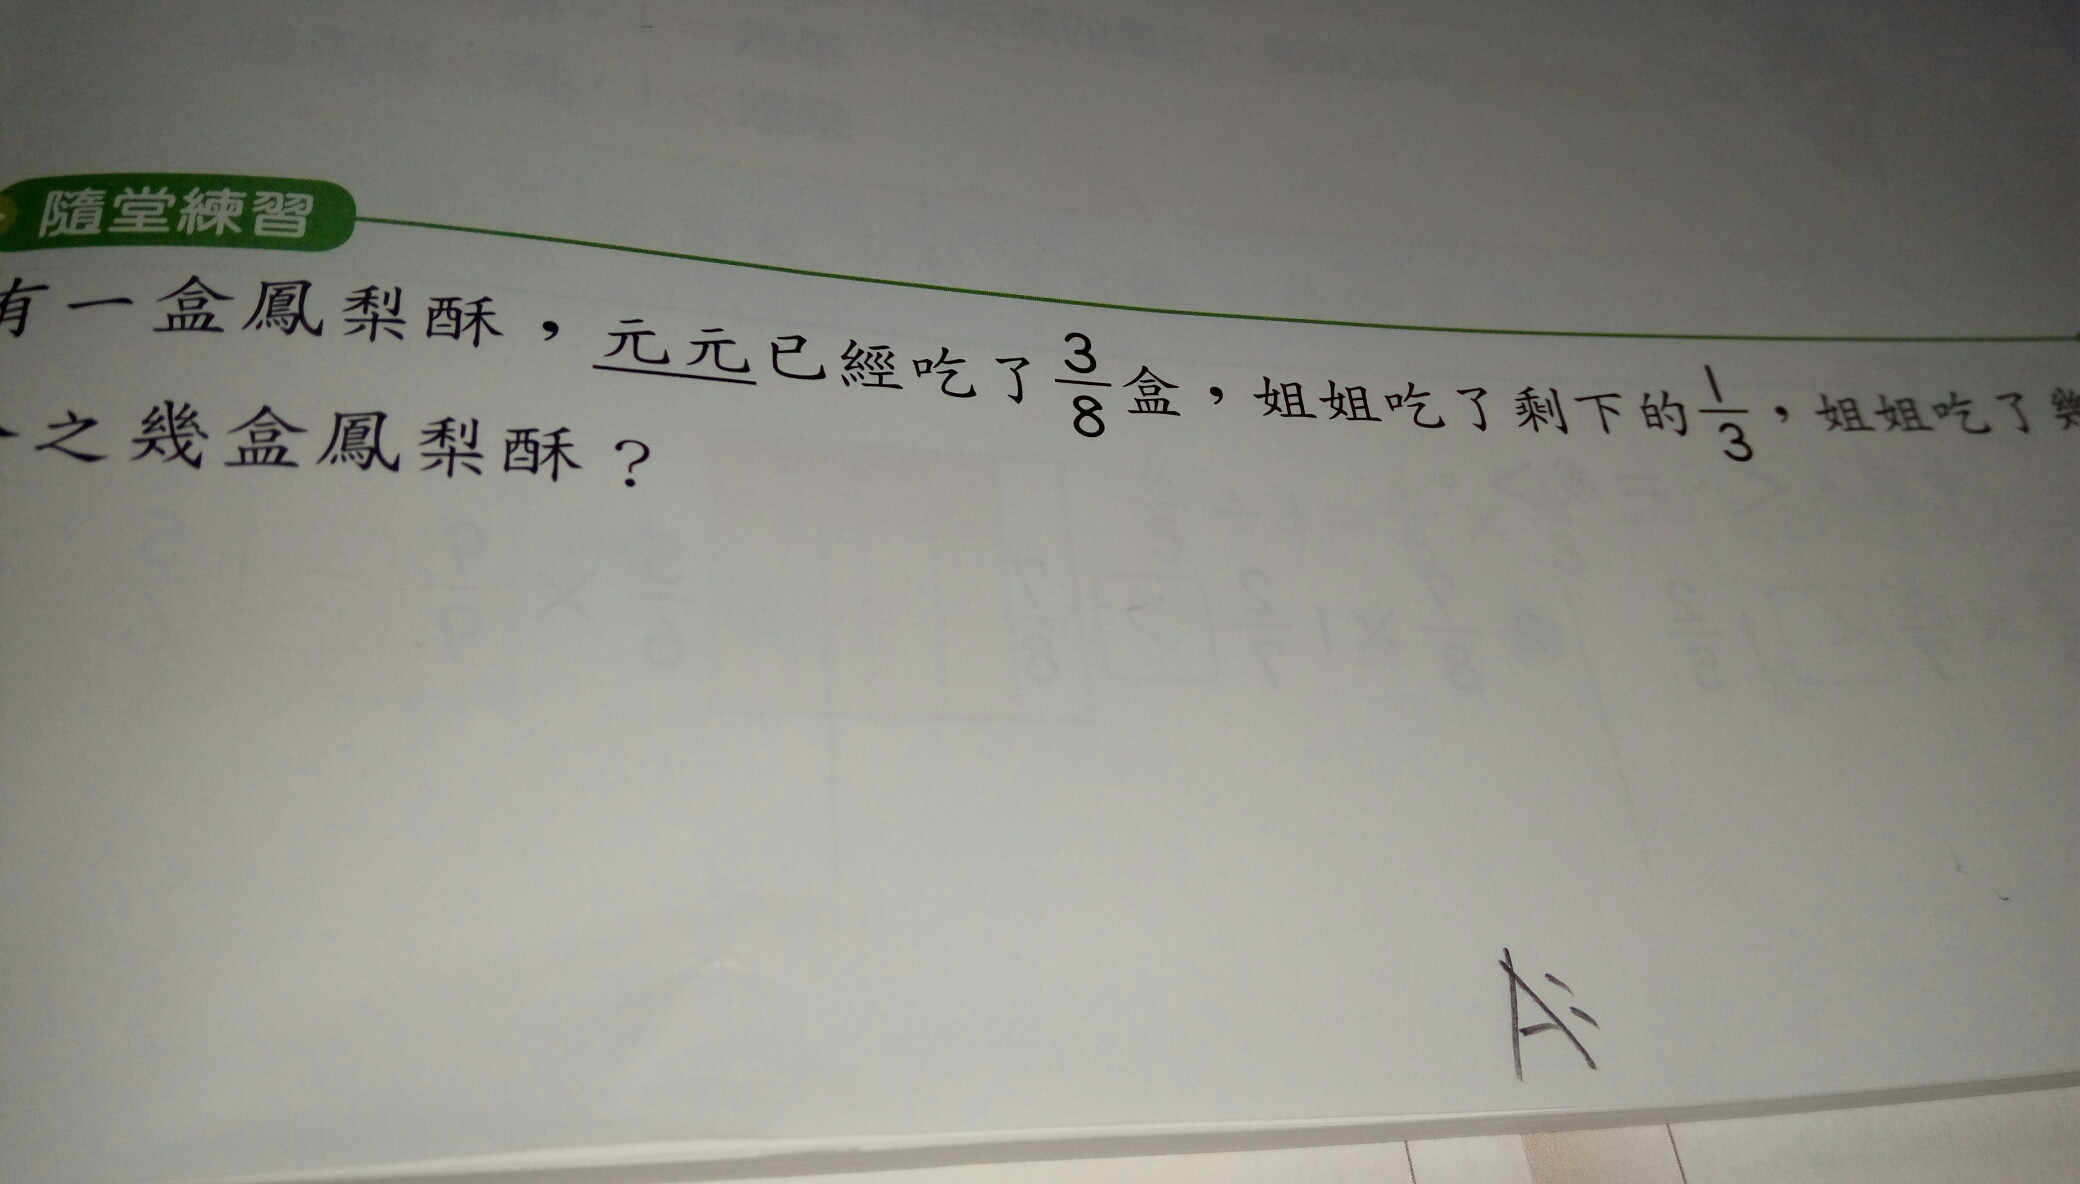 隨堂練習
有一盒鳳梨酥，元元已經吃了3/8盒，姐姐吃了剩下的1/3，姐姐吃了幾
之幾盒鳳梨酥？
A: